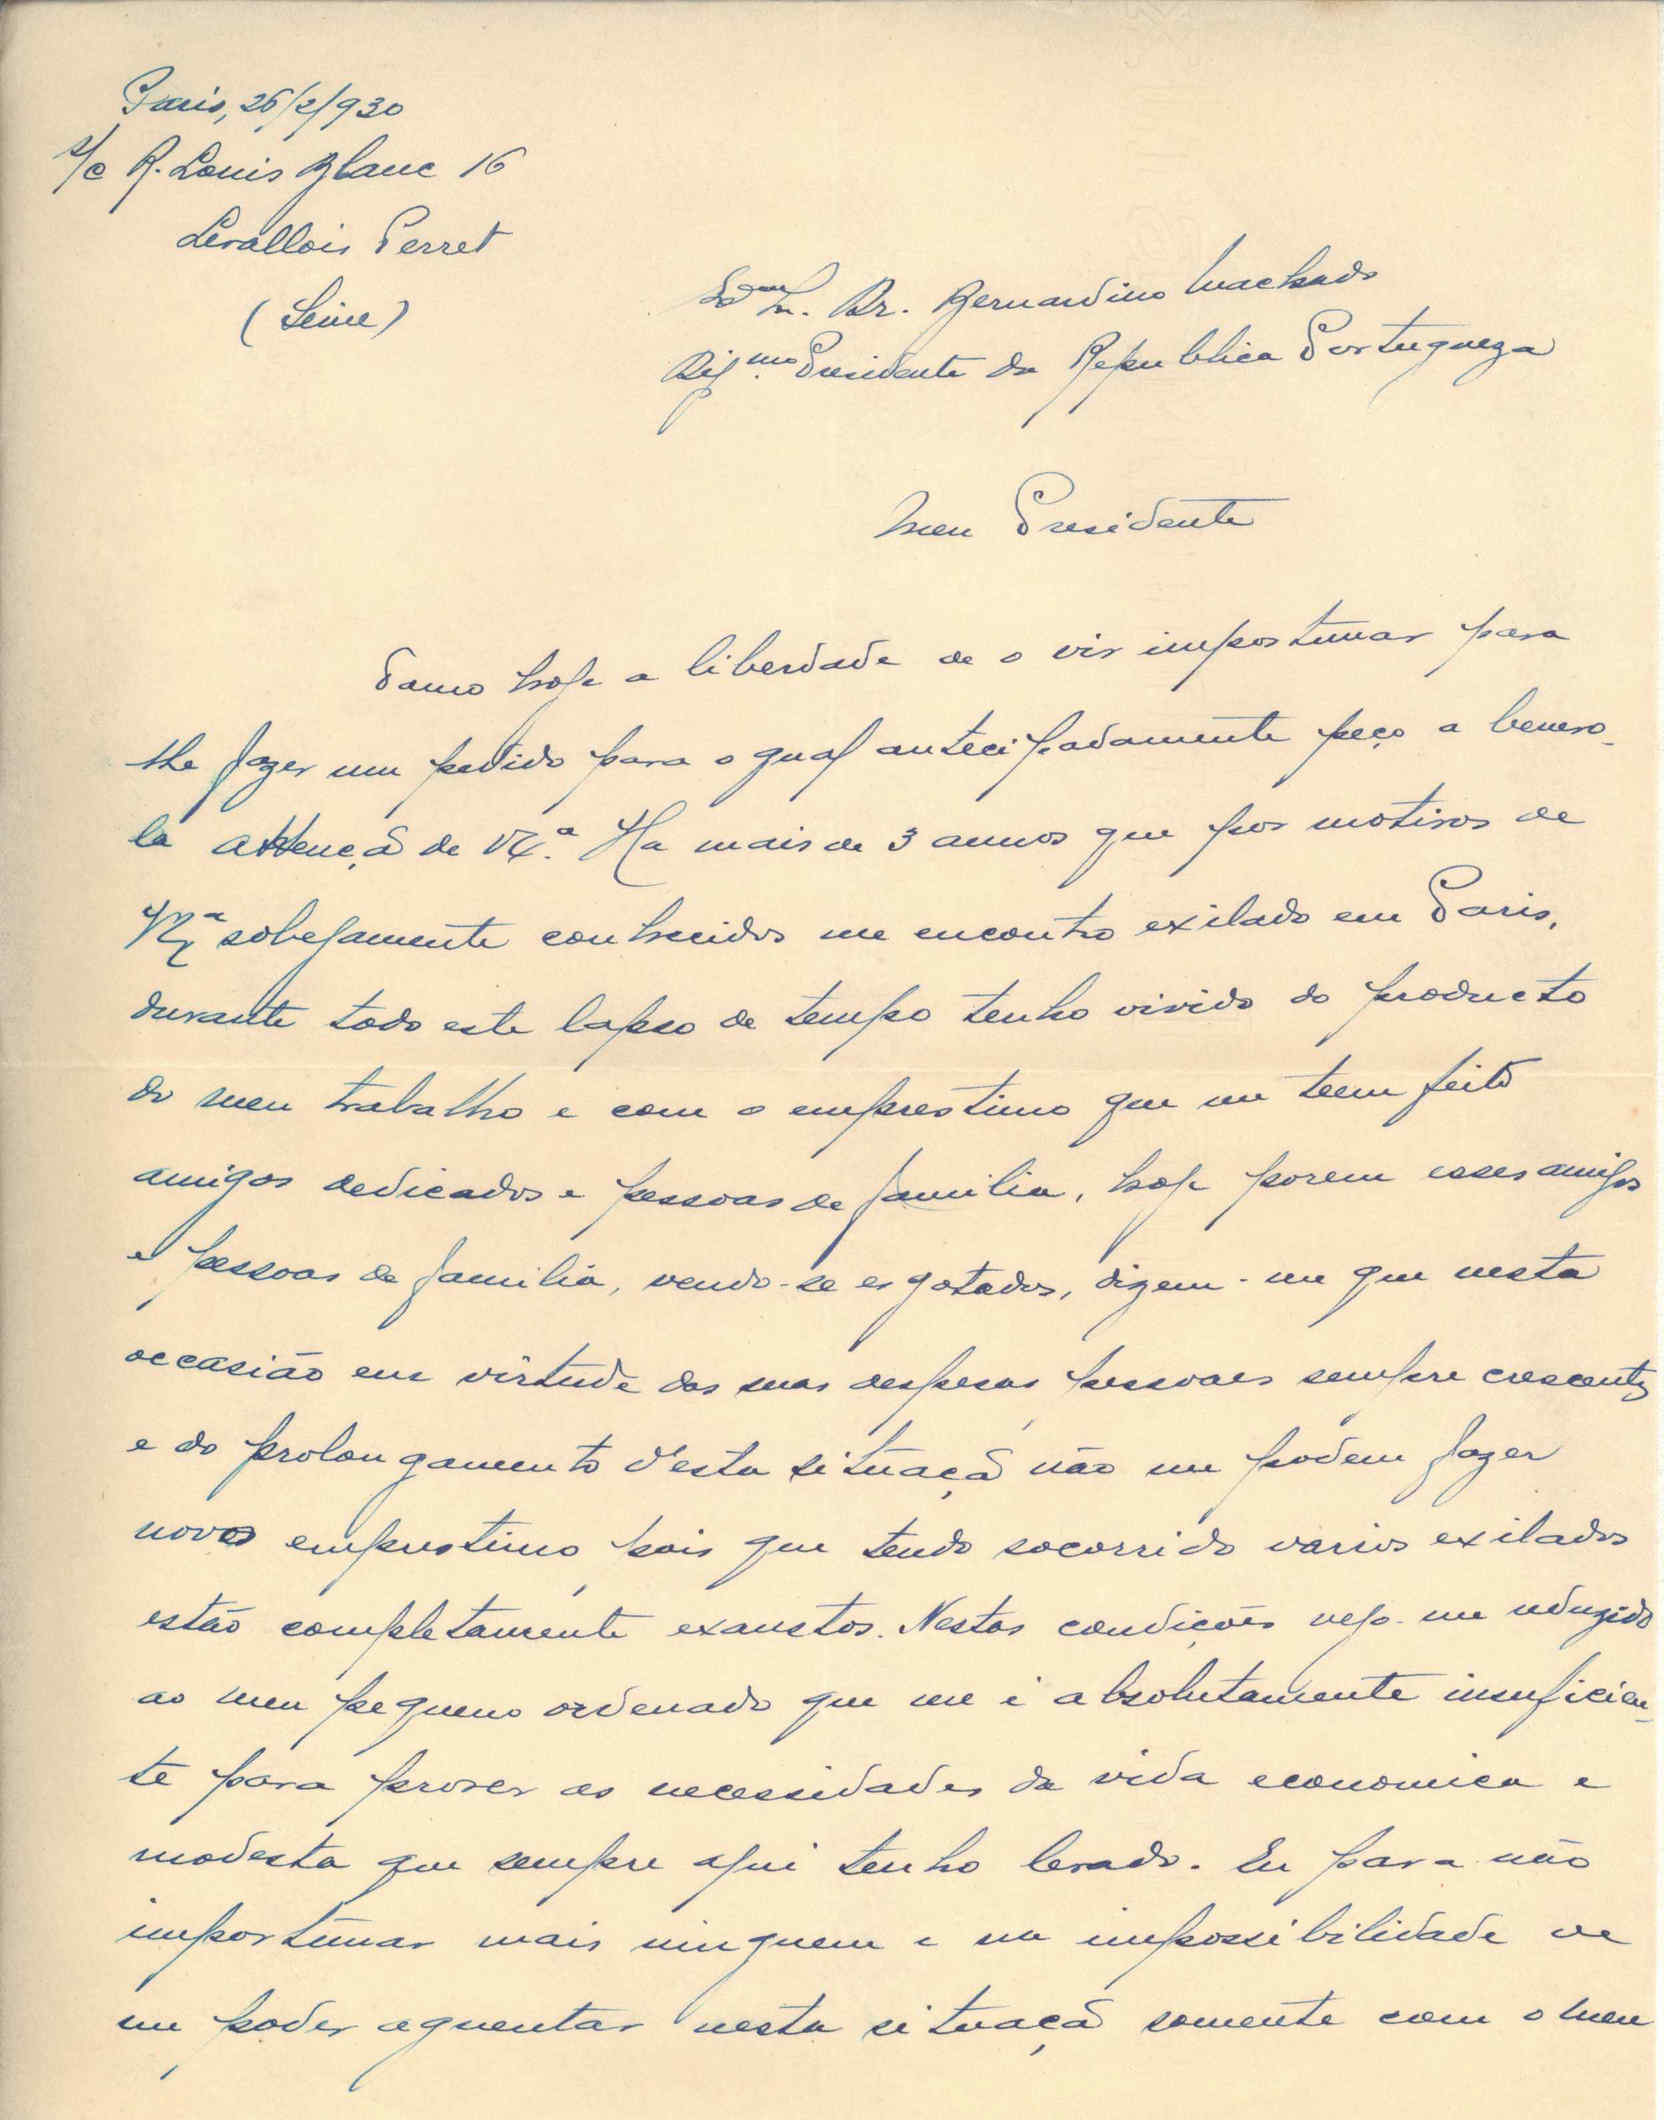 Paris, 26/2/930
s/c R. Louis Blanc 16
Levallois Perret
(Seine)
Exmo Sr. Dr. Bernardino Machado
Digmo Presidente da Republica Portugueza
Meu Presidente
Tomo hoje a liberdade de o vir importunar para
lhe fazer um pedido para o qual antecipadamente peço a benevo-
la attenção de V. Ex.ª Ha mais de 3 annos que por motivos de
V. Ex.ª sobejamente conhecidos me encontro exilado em Paris,
durante todo este lapso de tempo tenho vivido do producto
do meu trabalho e com o emprestimo que me teem feito
amigos dedicados e pessoas de familia, hoje porem esses amigos
e pessoas de familia, vendo-se esgotados, dizem-me que nesta
occasião em virtude das suas despesas pessoaes sempre crescentes
e do prolongamento d'esta situação não me podem fazer
novo emprestimo, pois que tendo socorrido varios exilados
estão completamente exaustos. Nestas condições vejo-me reduzido
ao meu pequeno ordenado que me é absolutamente insuficien-
te para prover as necessidades da vida economica e
modesta que sempre aqui tenho levado. Eu para não
importunar mais ninguem e na impossibilidade de
me poder aguentar nesta situação somente com o meu